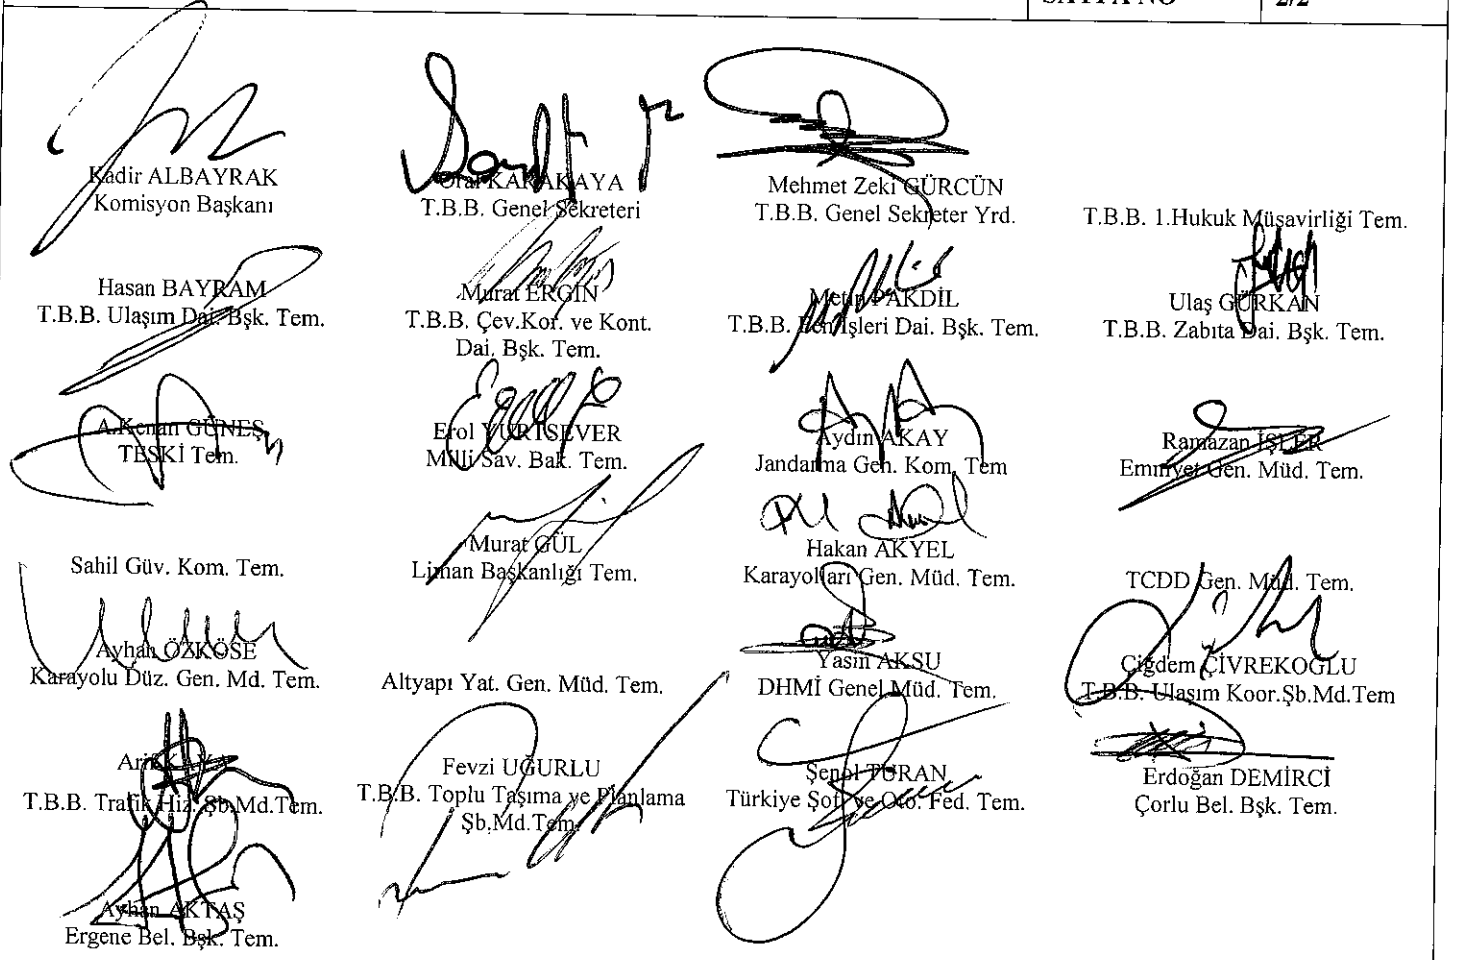 SAYFA NO 2/2
Kadir ALBAYRAK
Komisyon Başkanı
Oral KARAKAYA
T.B.B. Genel Sekreteri
Mehmet Zeki GÜRCÜN
T.B.B. Genel Sekreter Yrd.
T.B.B. 1.Hukuk Müşavirliği Tem.
Hasan BAYRAM
T.B.B. Ulaşım Dai. Bşk. Tem.
Murat ERGİN
T.B.B. Çev.Kor. ve Kont.
Dai. Bşk. Tem.
Metin PAKDİL
T.B.B. Fen İşleri Dai. Bşk. Tem.
Ulaş GÜRKAN
T.B.B. Zabıta Dai. Bşk. Tem.
A.Kenan GÜNEŞ
TESKİ Tem.
Erol YURTSEVER
Milli Sav. Bak. Tem.
Aydın AKAY
Jandarma Gen. Kom. Tem
Ramazan İŞLER
Emniyet Gen. Müd. Tem.
Sahil Güv. Kom. Tem.
Murat GÜL
Liman Başkanlığı Tem.
Hakan AKYEL
Karayolları Gen. Müd. Tem.
TCDD Gen. Müd. Tem.
Ayhan ÖZKÖSE
Karayolu Düz. Gen. Md. Tem.
Altyapı Yat. Gen. Müd. Tem.
Yasin AKSU
DHMİ Genel Müd. Tem.
Çiğdem ÇİVREKOĞLU
T.B.B. Ulaşım Koor.Şb.Md.Tem
Arif
T.B.B. Trafik Hiz. Şb.Md.Tem.
Fevzi UĞURLU
T.B.B. Toplu Taşıma ve Planlama
Şb.Md.Tem.
Şenol TURAN
Türkiye Şof. ve Oto. Fed. Tem.
Erdoğan DEMİRCİ
Çorlu Bel. Bşk. Tem.
Ayhan AKTAŞ
Ergene Bel. Bşk. Tem.